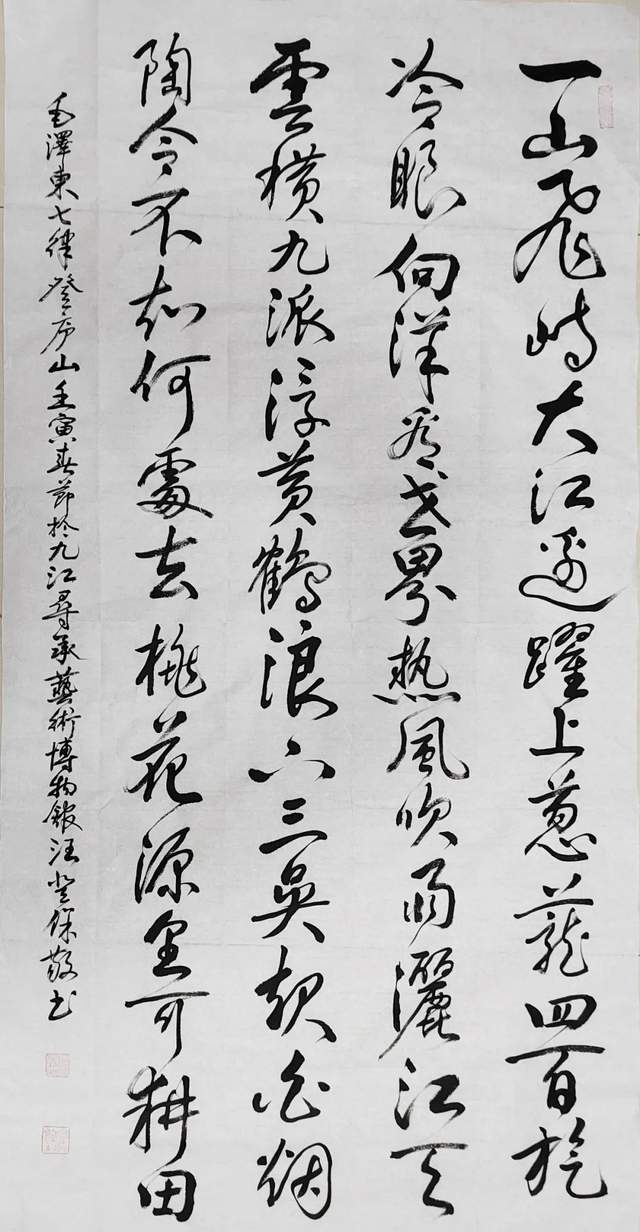 一山飛峙大江邊躍上蔥蘢四百旋
冷眼向洋看世界熱風吹雨灑江天
雲橫九派浮黃鶴浪下三吳起白烟
陶令不知何處去桃花源里可耕田
毛澤東七律登庐山壬寅春節於九江尋承藝術博物館汪登保敬书